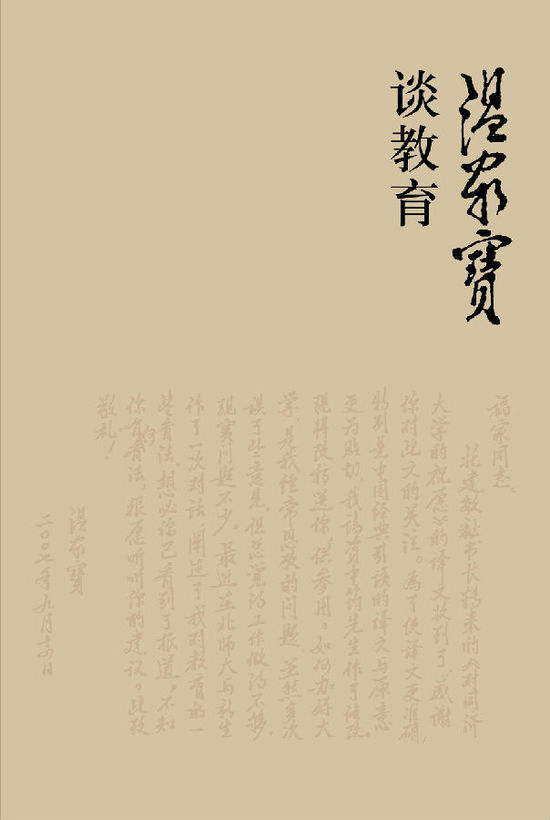 温家寶
谈教育
福家同志：
托建敏秘书长转来的《对同济
大学的祝愿》的译文收到了，感谢
你对此文的关注。为了使译文更准确，
特别是古国经典引语的译文与原意
更为贴切，我请资中筠先生作了修改。
现将改稿送你，供参用。如何办好大
学，是我经常思考的问题，虽然多次
谈了些意见，但总觉得工作做得不够，
现实问题不少。最近在北师大与新生
作了一次对话，阐述了我对教育的一
些看法，想必你已看到了报道，不知
你有何看法，很愿听听你的建议。此致
敬礼！
温家寶
二〇〇七年九月十四日